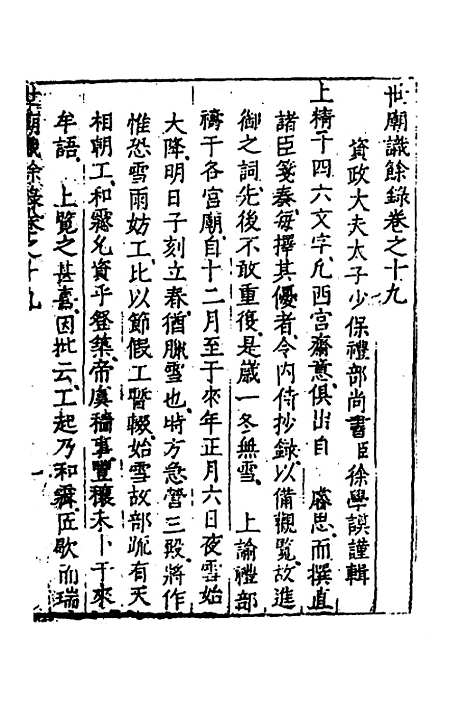 世廟識餘錄卷之十九
資政大夫太子少保禮部尚書臣徐學謨謹輯
上精于四六文字凡西宮齋意俱出自　睿思而撰直
諸臣箋奏每撰其優者令內侍抄錄以備觀覽故進
御之詞先後不敢重復是歲一冬無雪　上諭禮部
禱于各宮廟自十二月至于來年正月六日夜雪始
大降明日子刻立春猶臘雪也時方急營三殿將作
惟恐雪雨妨工比以節假工暫輟始雪故部疏有天
相朝工和靄允資乎登築帝虞穡事豐穰未卜于來
牟語　上覽之甚喜因批云工起乃和霽匠歇而瑞
世廟識餘錄卷之十九　一